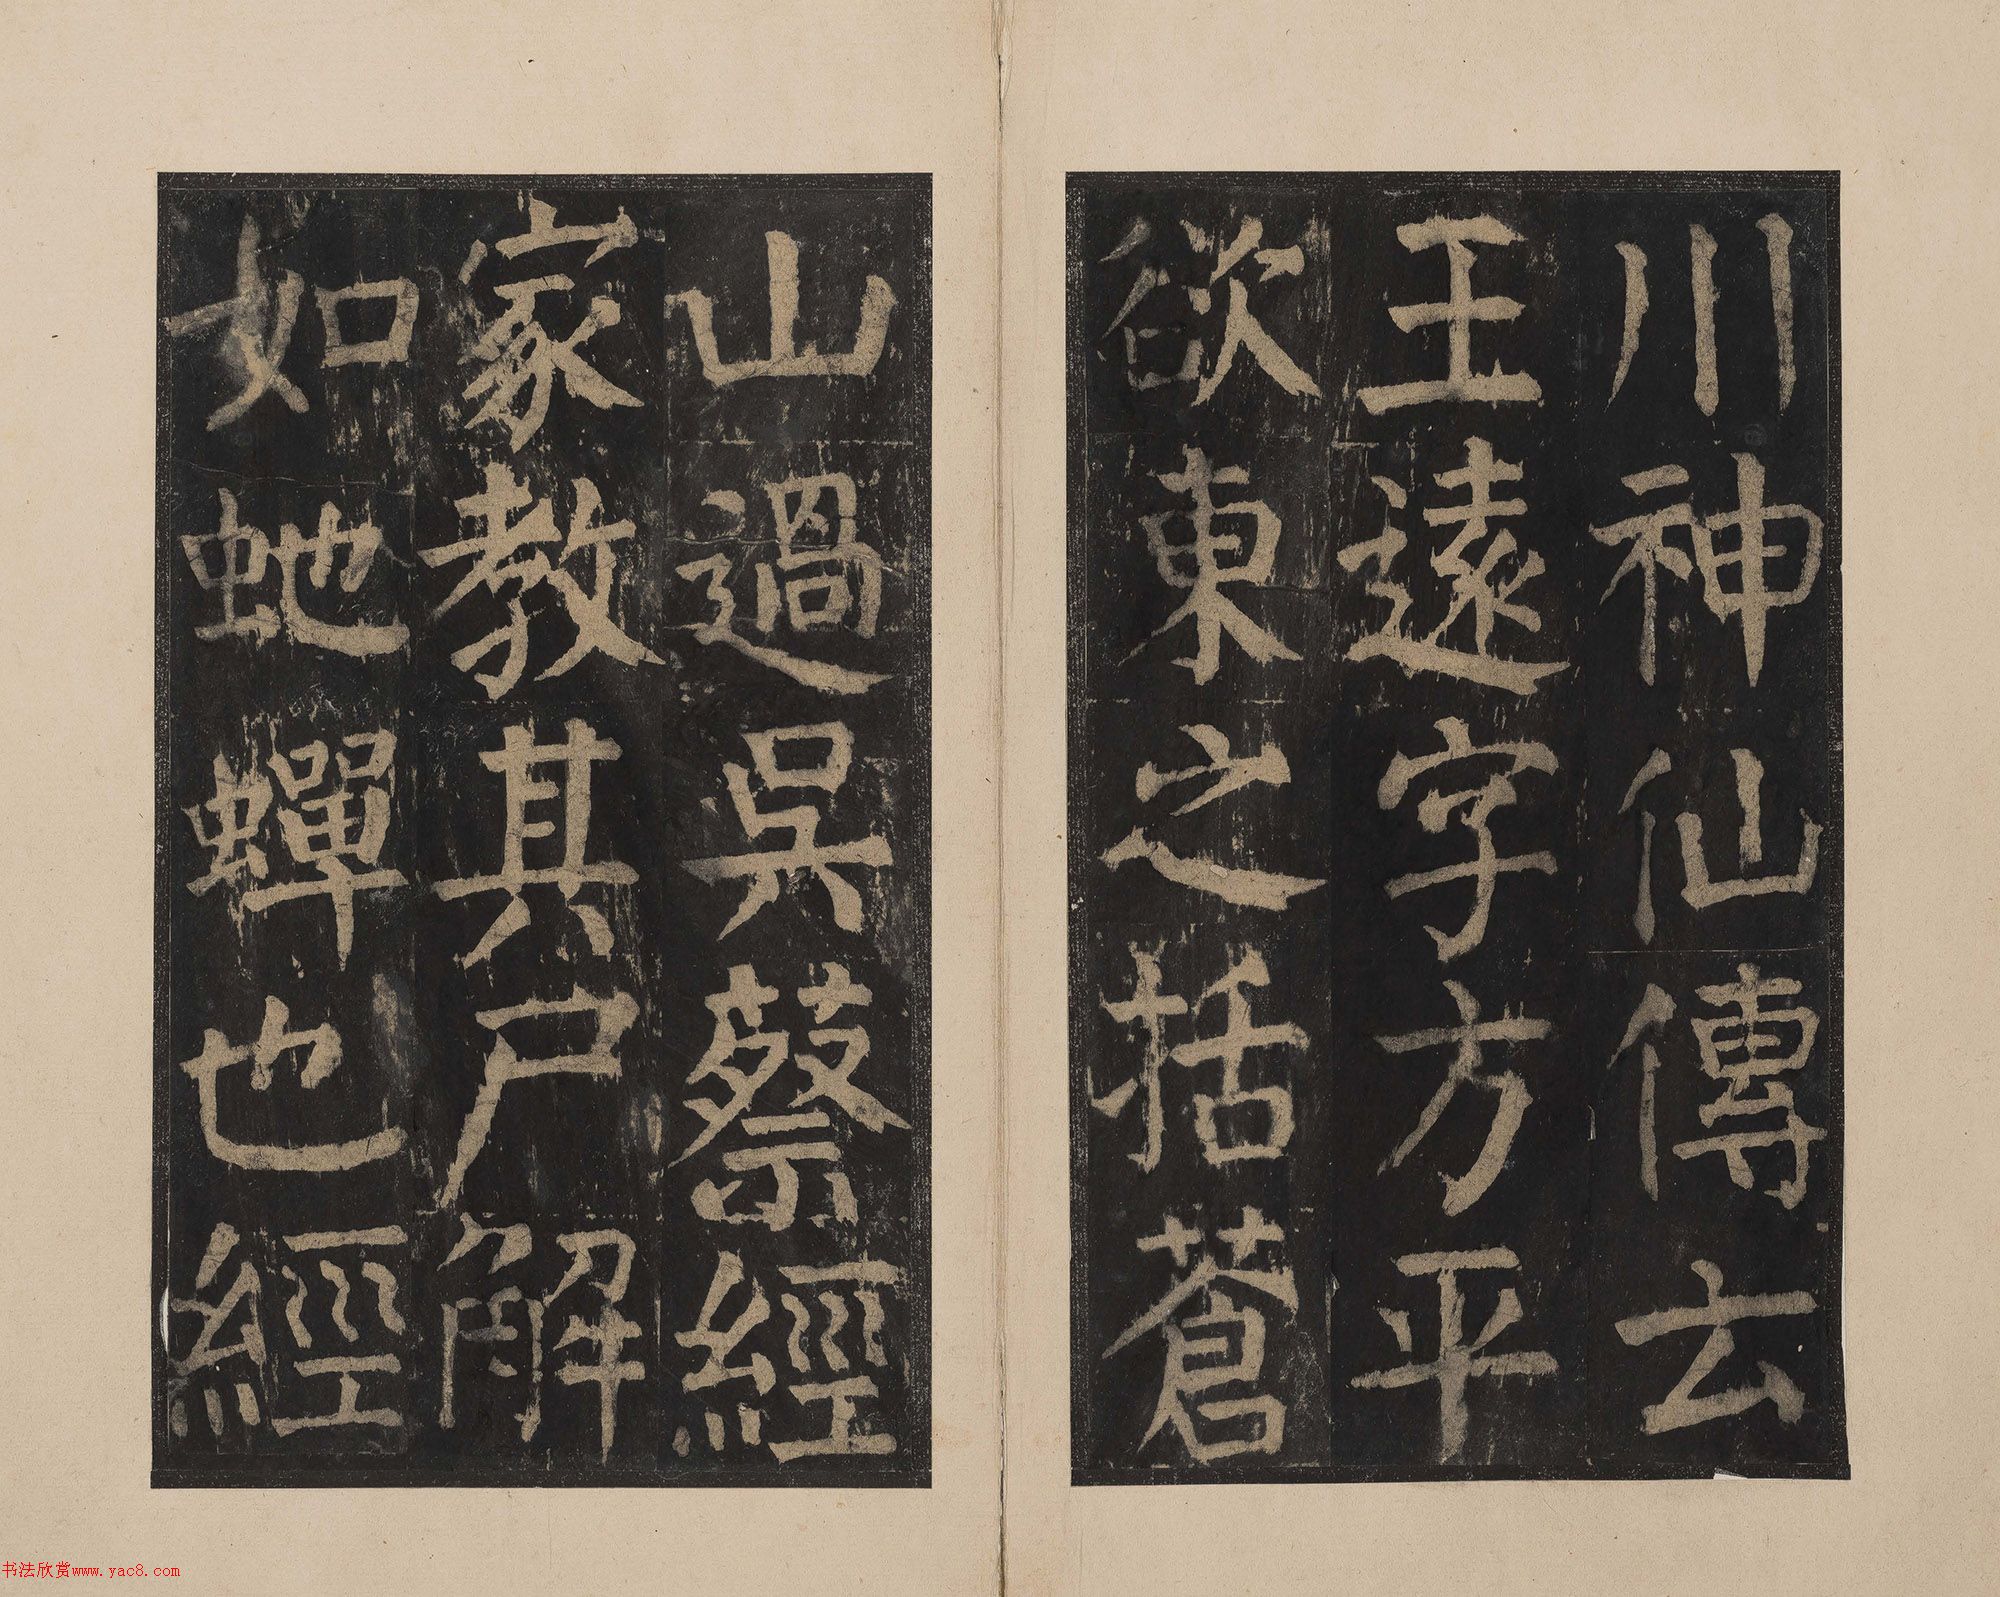 川神仙傳云
王遠字方平
欲東之括蒼
山過吳蔡經
家教其尸解
如虵蟬也經
书法欣赏www.yac8.com